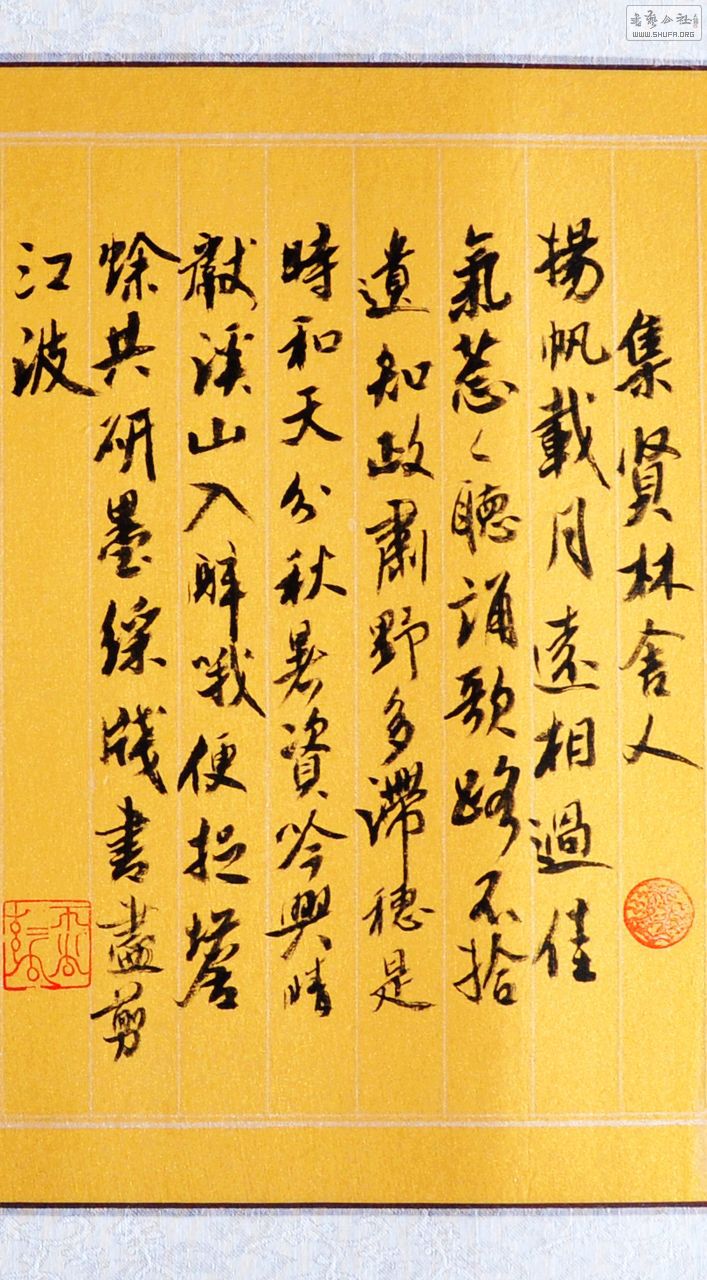 書藝公社
WWW.SHUFA.ORG
集賢林舍人
揚帆載月遠相過佳
氣葱〻聽誦歌路不拾
遺知政肅野多滯穗是
時和天分秋暑資吟興晴
獻溪山入醉哦便捉蟾
蜍共研墨綵牋書盡剪
江波